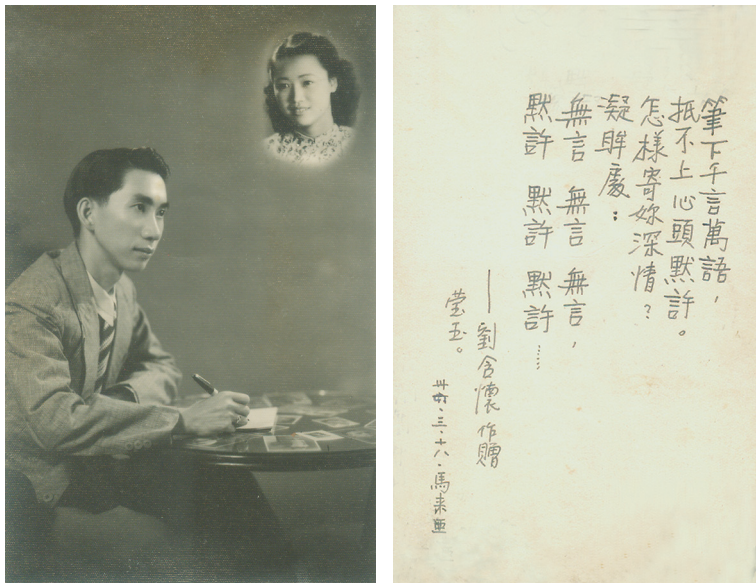 筆下千言萬語，
抵不上心頭默許。
怎樣寄妳深情？
凝眸處：
無言 無言 無言，
默許 默許 默許……
——劉含懷作贈
瑩玉。
三·十八·馬來亞